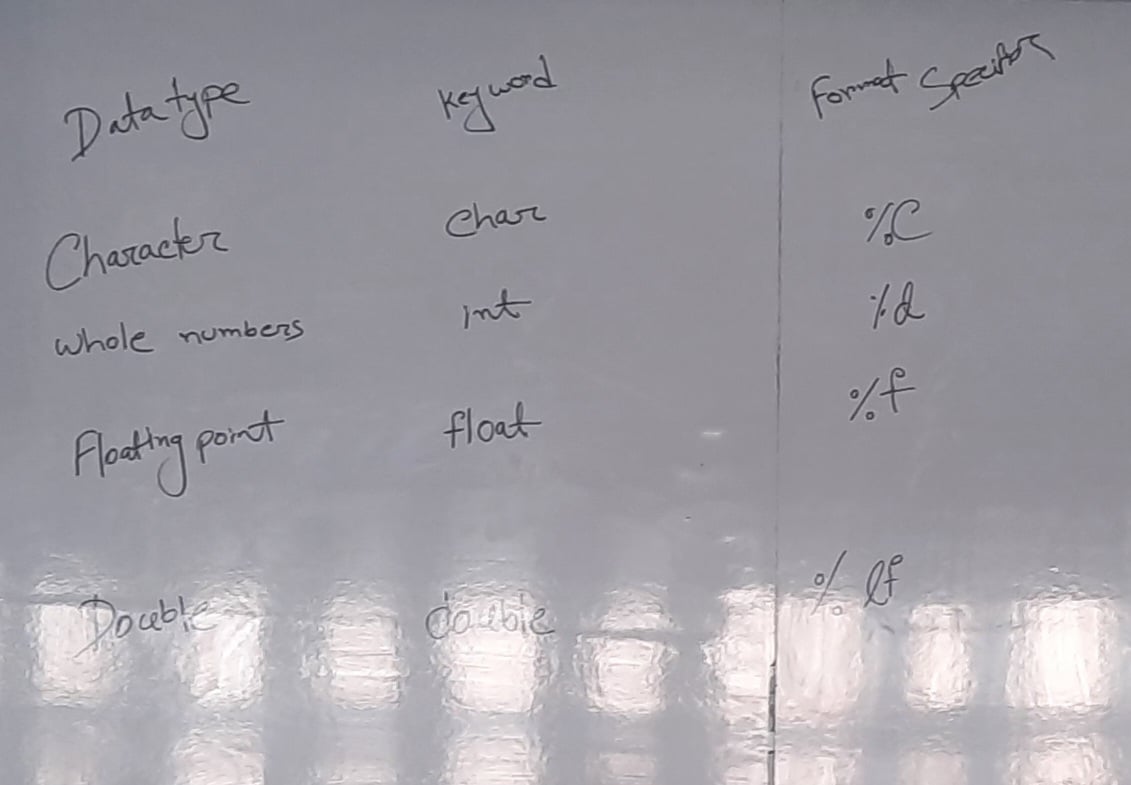 Data type keyword Format Specifier
Character Char %C
whole numbers int %d
Floating point float %f
Double double % lf